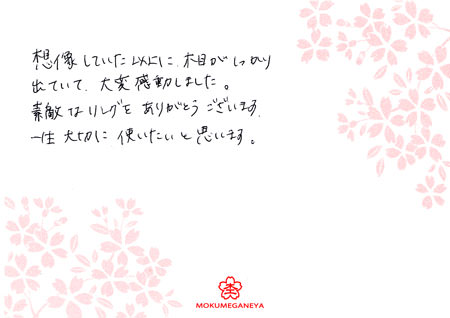 想像していた以上に、木目がしっかり
出ていて、大変感動しました。
素敵なリングをありがとうございます.
一生大切に使いたいと思います。
MOKUMEGANEYA